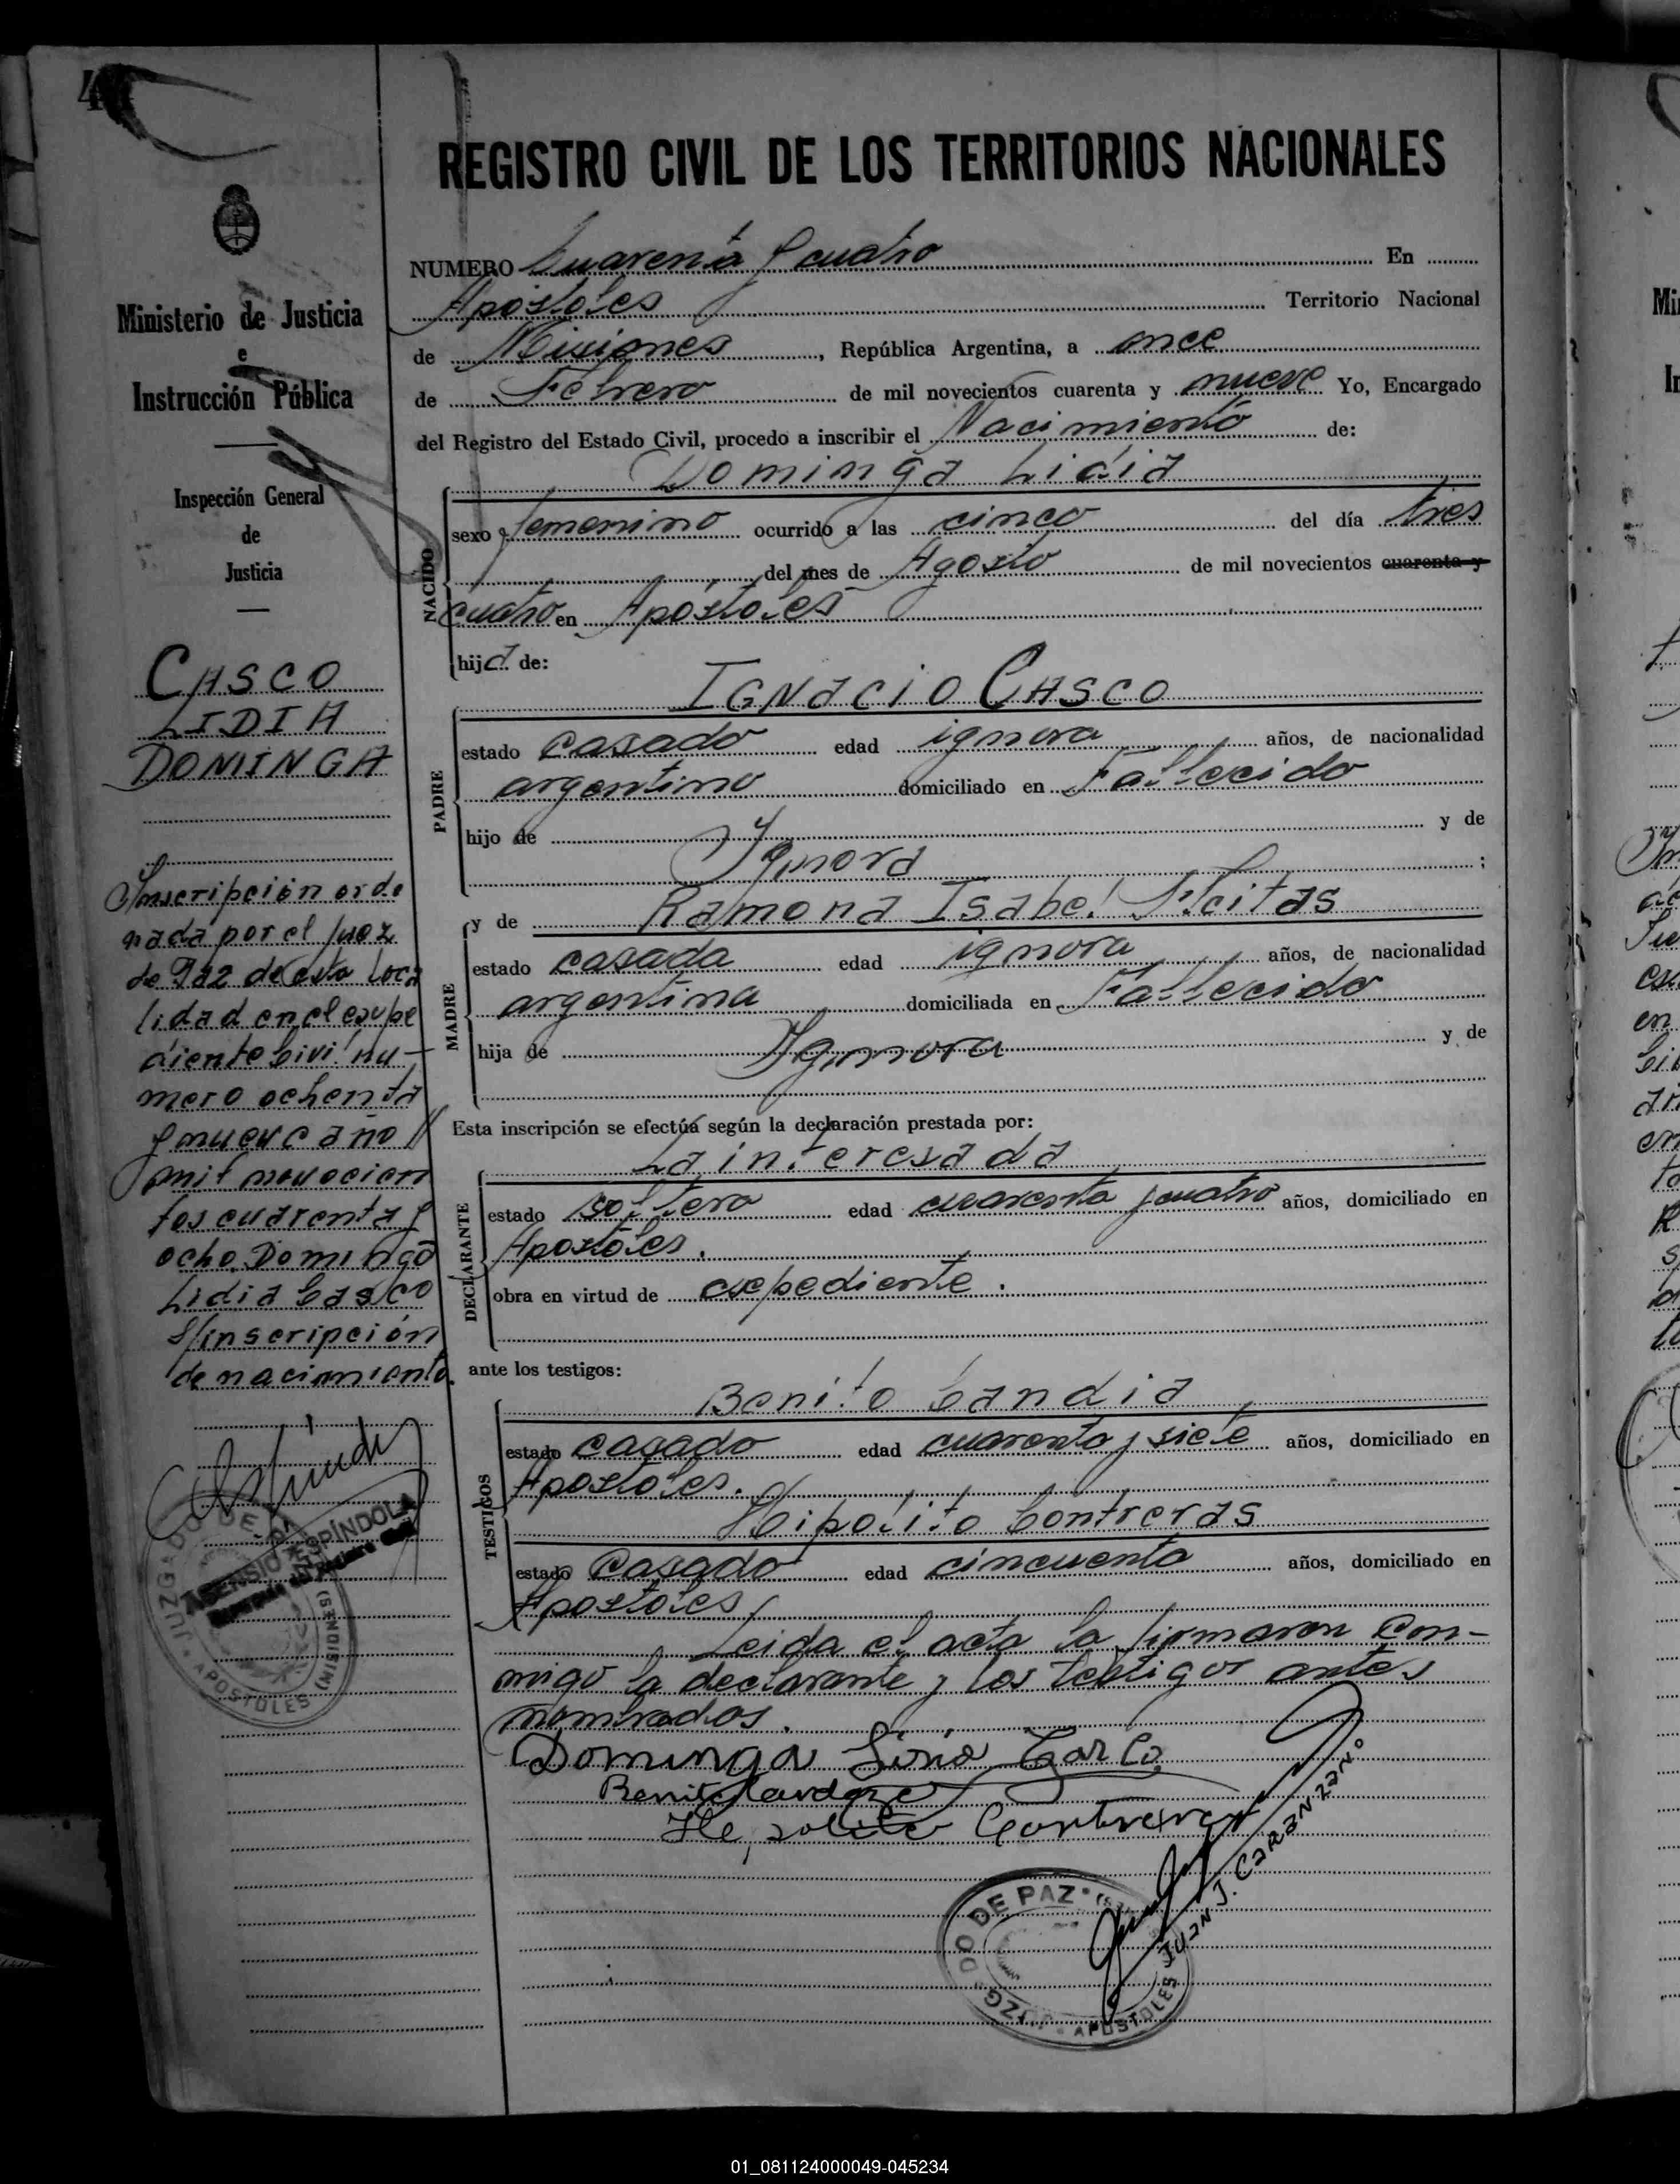 4
REGISTRO CIVIL DE LOS TERRITORIOS NACIONALES
Ministerio de Justicia
e
Instrucción Pública
Inspección General
de
Justicia
CASCO
LIDIA
DOMINGA
Inscripción orde
nada por el Juez
de Paz de esta loca
lidad en el expe
diente Civil nu-
mero ochenta
y nueve año //
mil novecien
tos cuarenta y
ocho. Domingo
Lidia Casco
S/inscripción
de nacimiento.
ASENSIO ESPÍNDOLA
Encargado del Registro Civil
JUZGADO DE PAZ
APOSTOLES (MISIONES)
NUMERO Cuarenta y cuatro En
Apóstoles Territorio Nacional
de Misiones, República Argentina, a once
de Febrero de mil novecientos cuarenta y nueve Yo, Encargado
del Registro del Estado Civil, procedo a inscribir el Nacimiento de:
NACIDO
Dominga Lidia
sexo femenino ocurrido a las cinco del día tres
del mes de Agosto de mil novecientos cuarenta y
cuatro en Apóstoles
hija de:
PADRE
IGNACIO CASCO
estado casado edad ignora años, de nacionalidad
argentino domiciliado en Fallecido
hijo de y de
Ignora ;
MADRE
y de Ramona Isabel Fleitas
estado casada edad ignora años, de nacionalidad
argentina domiciliada en Fallecido
hija de Ignora y de
Esta inscripción se efectúa según la declaración prestada por:
DECLARANTE
La interesada
estado soltera edad cuarenta y cuatro años, domiciliado en
Apóstoles.
obra en virtud de expediente.
ante los testigos:
TESTIGOS
Benito Candia
estado casado edad cuarenta y siete años, domiciliado en
Apostoles.
Hipólito Contreras
estado Casado edad cincuenta años, domiciliado en
Apostoles
Leida el acta la firmaron con-
migo la declarante y los testigos antes
nombrados.
Dominga Lidia Casco
Hepolito Contreras
JUAN J. CARANZANO
JUZGADO DE PAZ
APOSTOLES
01_081124000049-045234